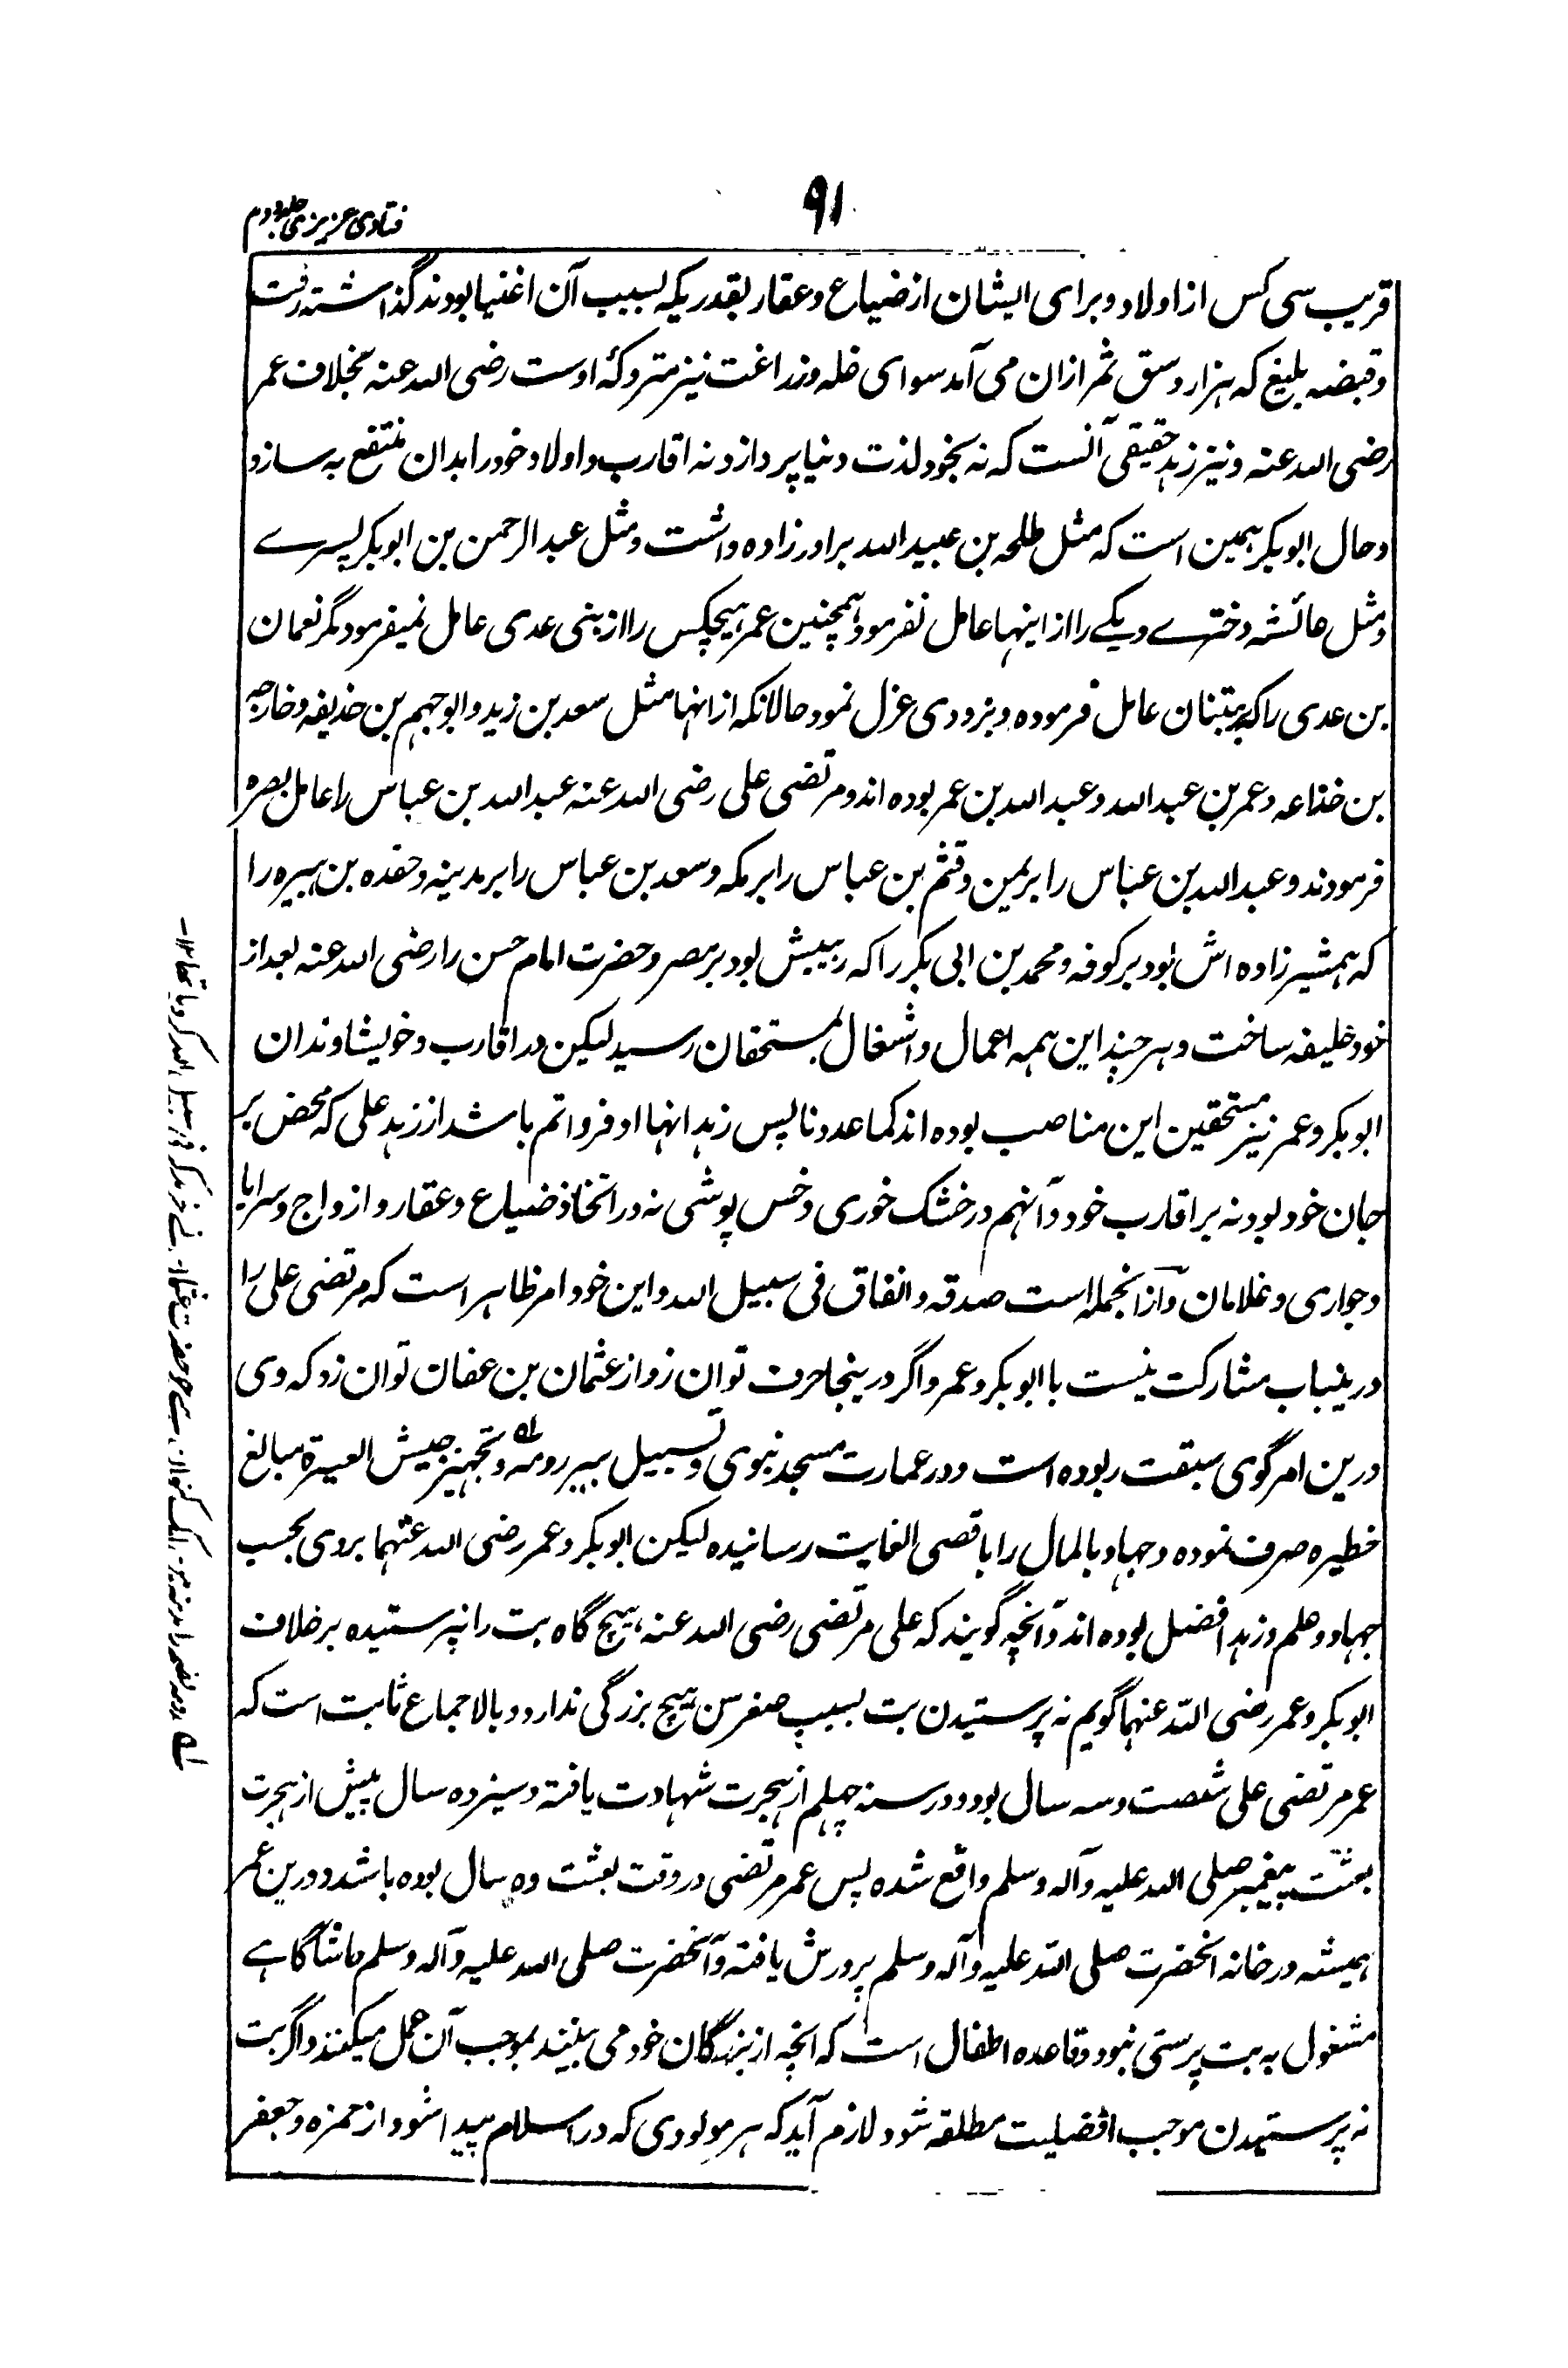 ۹۱
فتاوی عزیزی جلد دوم
قریب سی کس از اولاد و برای ایشان از ضیاع و عقار بقدریکه بسبب آن اغنیا بودند گذاشته رفت
و قبضه بلیغ که هزار وسق ثمر ازان می آمد سوای غله و زراعت نیز متروکهٔ اوست رضی الله عنه بخلاف عمر
رضی الله عنه و نیز زهد حقیقی آنست که نه بخود لذت دنیا پردازد نه اقارب و اولاد خود را بدان منتفع به سازد
و حال ابوبکر همین است که مثل طلحه بن عبید الله برادرزاده داشت و مثل عبد الرحمن بن ابوبکر پسرے
و مثل عائشه دخترے و یکے را از اینها عامل نفرمود و همچنین عمر هیچکس را از بنی عدی عامل نمیفرمود مگر نعمان
بن عدی را که بتبنان عامل فرموده و بزودی عزل نمود حالانکه از انها مثل سعد بن زید و ابو جهم بن حذیفه و خارجه
بن خذاعه و عمر بن عبد الله و عبد الله بن عمر بوده اند و مرتضی علی رضی الله عنه عبد الله بن عباس را عامل بصره
فرمودند و عبد الله بن عباس را بر یمن و قثم بن عباس را بر مکه و سعد بن عباس را بر مدینه و حفده بن هبیره را
که همشیرزاده اش بود بر کوفه و محمد بن ابی بکر را که ربیبش بود بر مصر و حضرت امام حسن را رضی الله عنه بعد از
خود خلیفه ساخت و هر چند این همه اعمال و اشغال بمستحقان رسید لیکن در اقارب و خویشاوندان
ابوبکر و عمر نیز مستحقین این مناصب بوده اند کما عددنا پس زهد انها اوفر و اتم باشد از زهد علی که محض بر
جان خود بود نه بر اقارب خود و آنهم در خشک خوری و خس پوشی نه در اتخاذ ضیاع و عقار و ازواج و سرایا
و جواری و غلامان و ازانجمله است صدقه و انفاق فی سبیل الله و این خود امر ظاهر است که مرتضی علی را
درینباب مشارکت نیست با ابوبکر و عمر و اگر درینجا حرف توان زد از عثمان بن عفان توان زد که وی
درین امر گوی سبقت ربوده است و در عمارت مسجد نبوی و تسبیل بیر رومه و تجهیز جیش العسرة مبالغ
خطیره صرف نموده و جهاد بالمال را باقصی الغایت رسانیده لیکن ابوبکر و عمر رضی الله عنهما بر وی بحسب
جهاد و علم و زهد افضل بوده اند و آنچه گویند که علی مرتضی رضی الله عنه هیچ گاه بت را نپرستیده بر خلاف
ابوبکر و عمر رضی الله عنهما گویم نه پرستیدن بت بسبب صغر سن هیچ بزرگی ندارد و بالاجماع ثابت است که
عمر مرتضی علی شصت و سه سال بود و در سنه چهلم از هجرت شهادت یافته و سیزده سال پیش از هجرت
بعثت پیغمبر صلی الله علیه و آله وسلم واقع شده پس عمر مرتضی در وقت بعثت ده سال بوده باشد و درین عمر
همیشه در خانه انحضرت صلی الله علیه و آله وسلم پرورش یافته و آنحضرت صلی الله علیه و آله وسلم حاشا گاهے
مشغول به بت پرستی نبود و قاعده اطفال است که انچه از بزرگان خود می بینند بموجب آن عمل میکنند و اگر بت
نه پرستیدن موجب افضلیت مطلقه شود لازم آید که هر مولودی که در اسلام پیدا شود از حمزه و جعفر